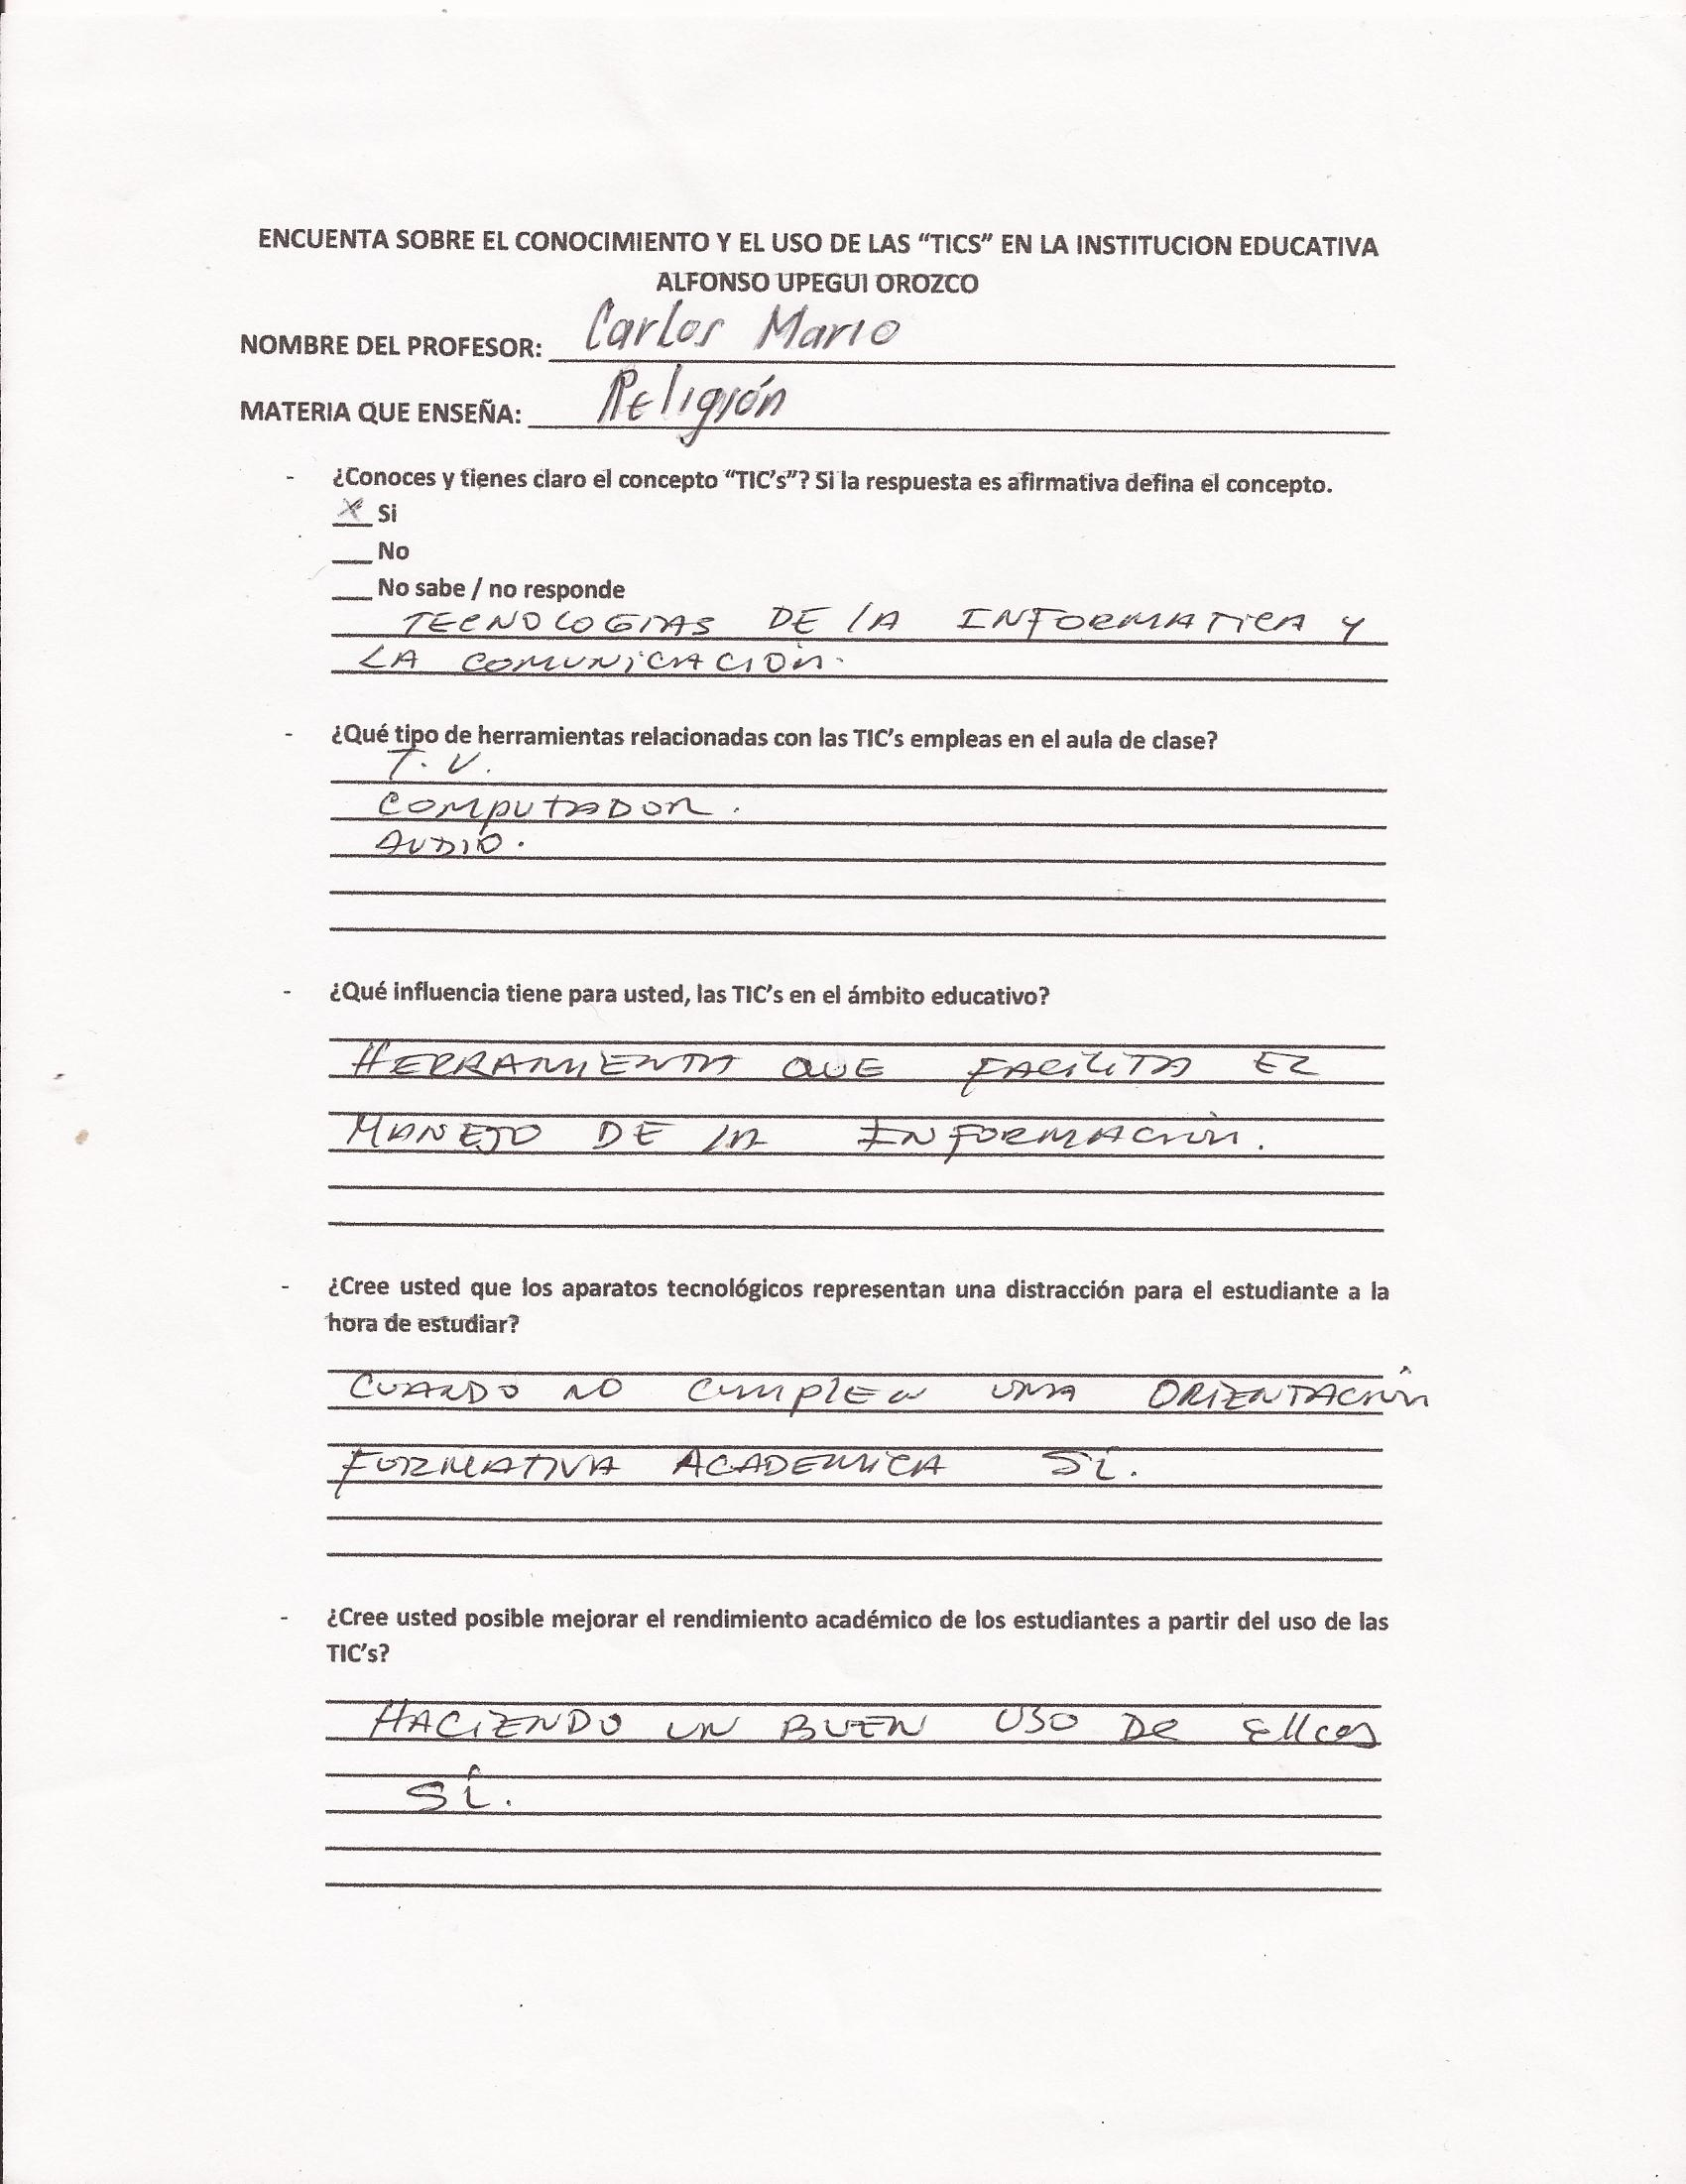 ENCUENTA SOBRE EL CONOCIMIENTO Y EL USO DE LAS “TICS” EN LA INSTITUCION EDUCATIVA
ALFONSO UPEGUI OROZCO
NOMBRE DEL PROFESOR: Carlos Mario
MATERIA QUE ENSEÑA: Religión
- ¿Conoces y tienes claro el concepto “TIC’s”? Si la respuesta es afirmativa defina el concepto.
X Si
___ No
___ No sabe / no responde
TECNOLOGIAS DE LA INFORMATICA Y
LA COMUNICACIÓN.
- ¿Qué tipo de herramientas relacionadas con las TIC’s empleas en el aula de clase?
T.V.
COMPUTADOR.
AUDIO.
- ¿Qué influencia tiene para usted, las TIC’s en el ámbito educativo?
HERRAMIENTA QUE FACILITA EL
MANEJO DE LA INFORMACIÓN.
- ¿Cree usted que los aparatos tecnológicos representan una distracción para el estudiante a la
hora de estudiar?
CUANDO NO CUMPLEN UNA ORIENTACIÓN
FORMATIVA ACADEMICA SÍ.
- ¿Cree usted posible mejorar el rendimiento académico de los estudiantes a partir del uso de las
TIC’s?
HACIENDO UN BUEN USO DE Ellas
SÍ.